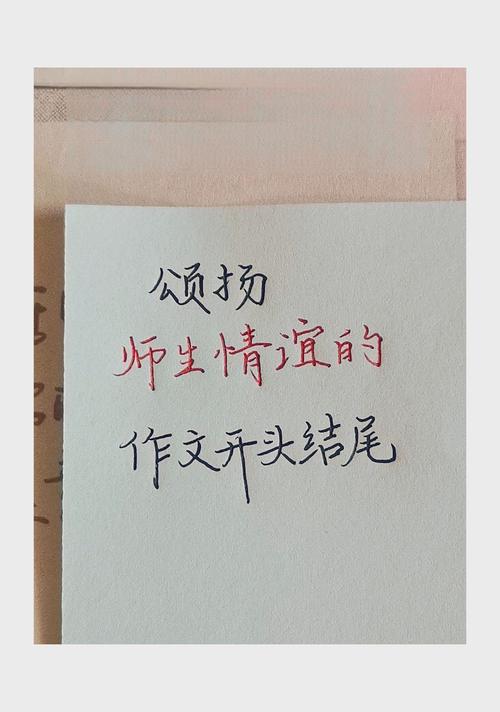 颂扬
师生情谊的
作文开头结尾